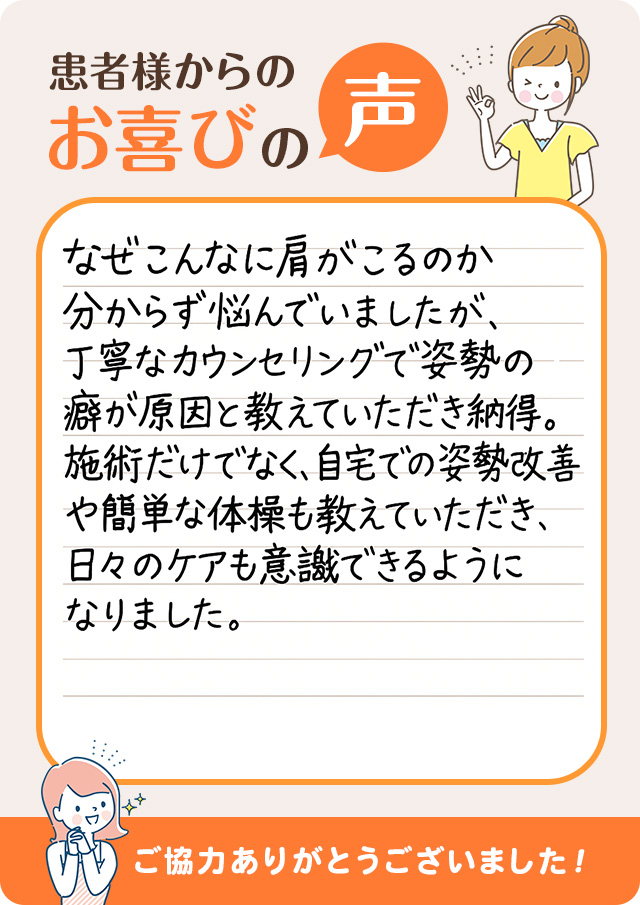 患者様からの
お喜びの声
なぜこんなに肩がこるのか
分からず悩んでいましたが、
丁寧なカウンセリングで姿勢の
癖が原因と教えていただき納得。
施術だけでなく、自宅での姿勢改善
や簡単な体操も教えていただき、
日々のケアも意識できるように
なりました。
ご協力ありがとうございました！